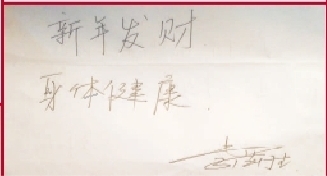 新年发财
身体健康.